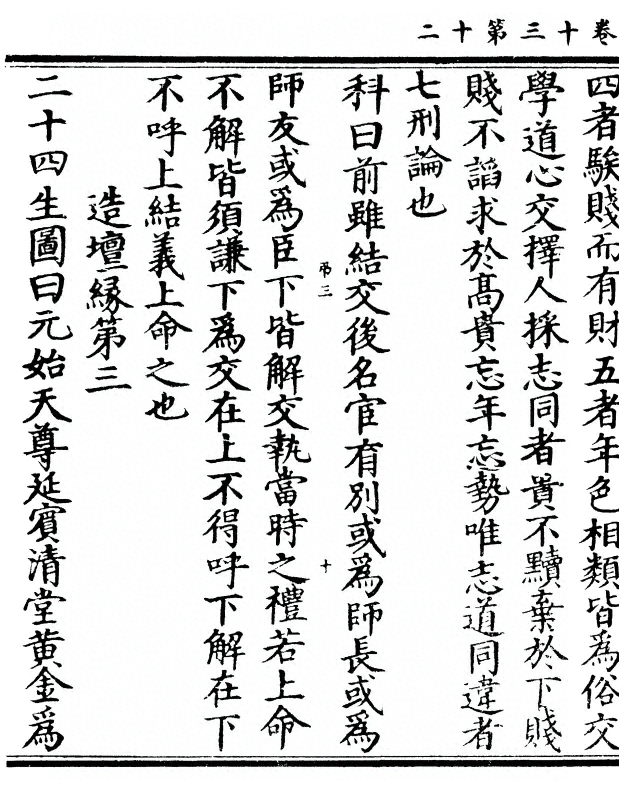 卷十三第十二
四者騃賤而有財五者年色相類皆爲俗交
學道心交擇人採志同者貴不黷棄於下賤
賤不謟求於高貴忘年忘勢唯志道同違者
七刑論也
科曰前雖結交後名宦有別或爲師長或爲
帛三
十
師友或爲臣下皆解交執當時之禮若上命
不解皆須謙下爲交在上不得呼下解在下
不呼上結義上命之也
造壇緣第三
二十四生圖曰元始天尊延賓清堂黄金爲